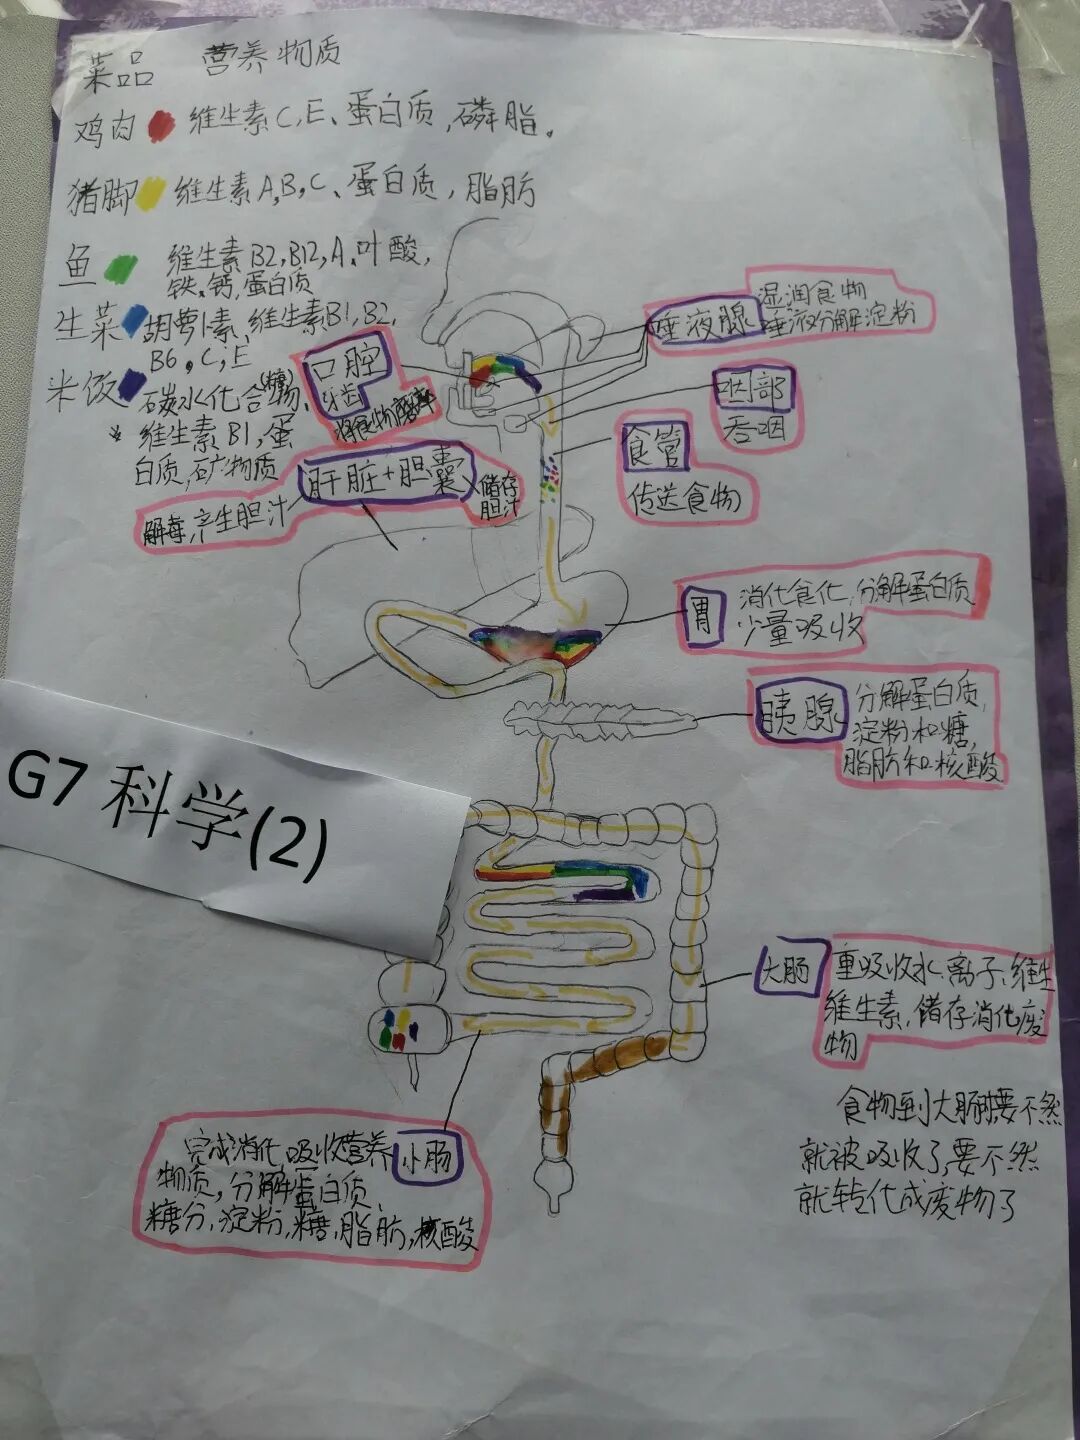 菜品 营养物质
鸡肉 维生素C,E、蛋白质,磷脂。
猪脚 维生素A,B,C、蛋白质,脂肪
鱼 维生素B2,B12,A、叶酸,
铁、钙,蛋白质
生菜 胡萝卜素、维生素B1,B2,
B6,C,E
米饭 碳水化合物(糖)、
维生素B1,蛋
白质,矿物质
口腔
牙齿
将食物磨碎
唾液腺
湿润食物
唾液分解淀粉
咽部
吞咽
食管
传送食物
肝脏+胆囊
储存
胆汁
解毒,产生胆汁
胃
消化食化,分解蛋白质
少量吸收
胰腺
分解蛋白质,
淀粉和糖,
脂肪和核酸
G7 科学(2)
大肠
重吸收水、离子、维生
维生素,储存消化废
物
食物到大肠要不然
就被吸收了,要不然
就转化成废物了
小肠
完成消化,吸收营养
物质,分解蛋白质、
糖分,淀粉,糖,脂肪,核酸